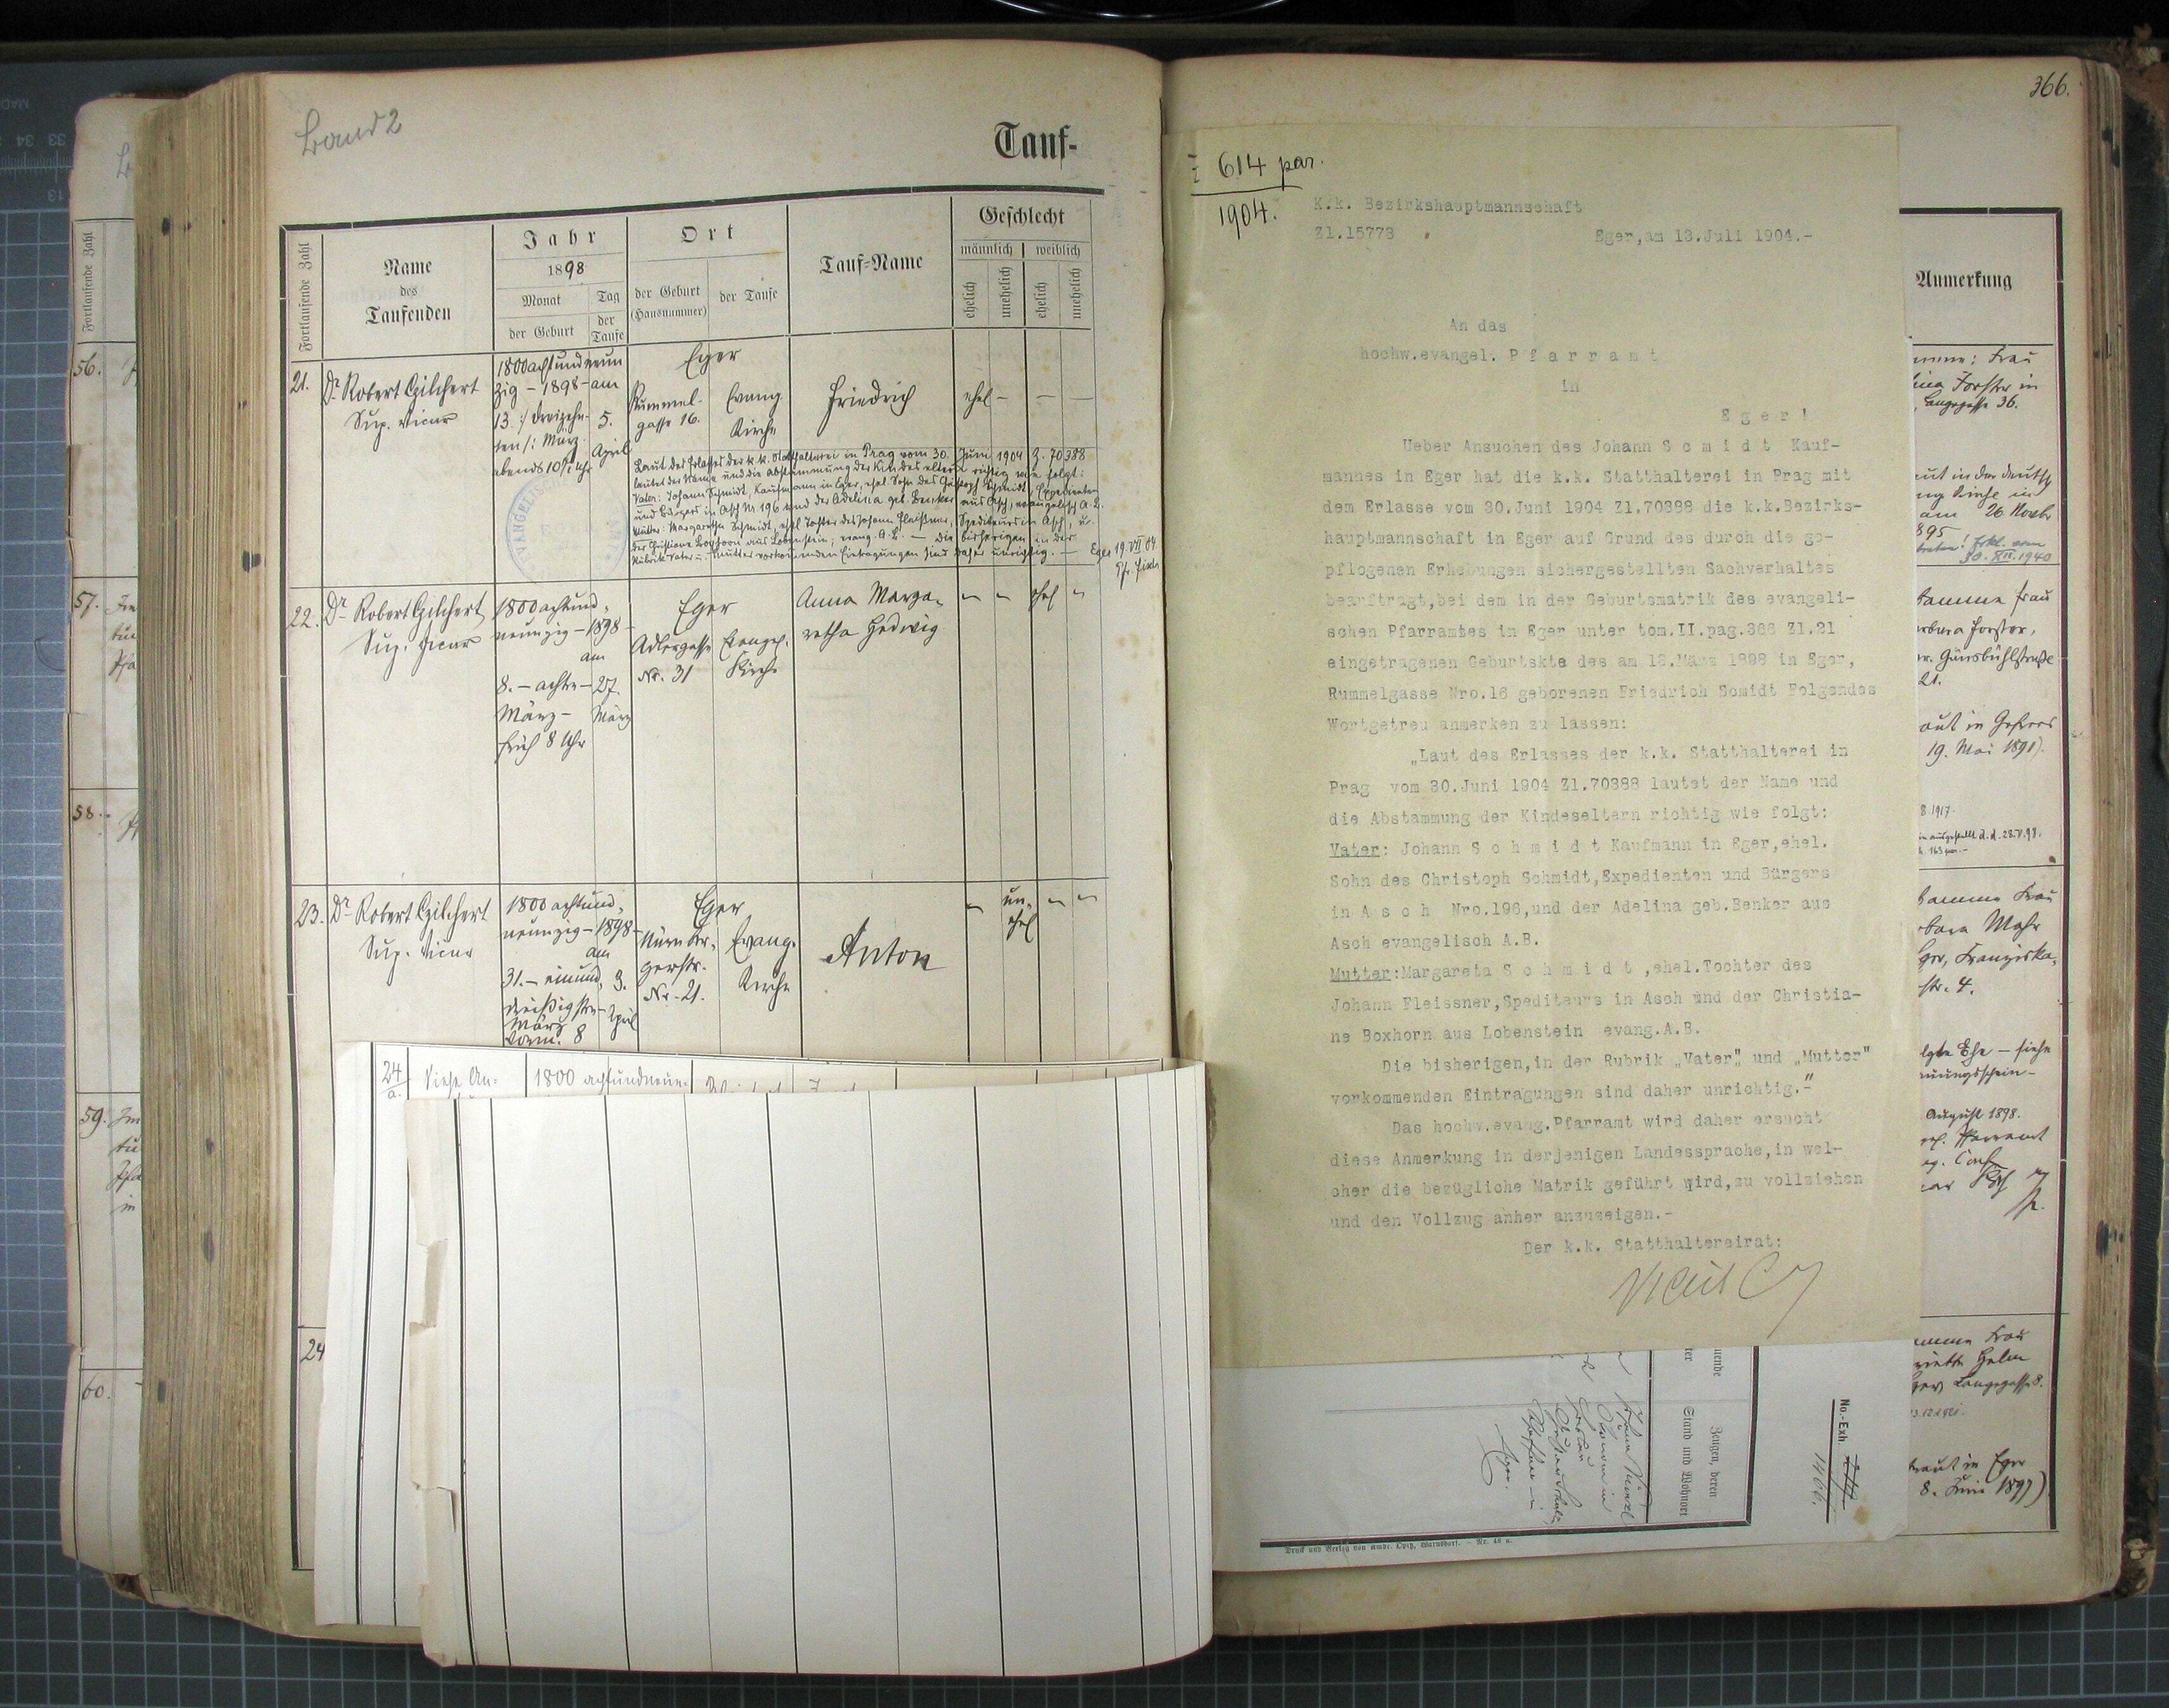 Band 2
Tauf-
Fortlaufende Zahl
Name
des
Taufenden
Jahr
1898
Monat
Tag
der Geburt
der
Taufe
Ort
der Geburt
(Hausnummer)
der Taufe
Tauf-Name
Geschlecht
männlich
weiblich
ehelich
unehelich
ehelich
unehelich
21.
Dr. Robert Gilchert
Sup. Vicar
1800 achtundneun
zig - 1898 - am
13 :/ dreizehn-
ten /: März
abends 10½ Uhr
5.
April
Eger
Rummel-
gasse 16.
Evang.
Kirche
Friedrich
ehel - - -
Laut des Erlasses der k.k. Statthalterei in Prag vom 30. Juni 1904 Z. 70388
lautet der Name und die Abstammung der Kindeseltern richtig wie folgt:
Vater: Johann Schmidt, Kaufmann in Eger, ehel. Sohn des Christoph Schmidt, Expedienten
und Bürgers in Asch Nr 196 und der Adelina geb. Benker aus Asch, evangelisch A.B.
Mutter: Margaretha Schmidt, ehel. Tochter des Johann Fleißner, Spediteurs in Asch, u.
der Christiane Boxhorn aus Lobenstein; evang. A.B. — Die bisherigen in der
Rubrik Vater u. Mutter vorkommenden Eintragungen sind daher unrichtig. — Eger 19.VII.04.
22.
Dr. Robert Gilchert
Sup. Vicar
1800 achtund-
neunzig - 1898
am
8. - achte -
März -
früh 8 Uhr
27.
März
Eger
Adlergasse
Nr. 31
Evangel.
Kirche
Anna Marga-
retha Hedwig
ehel
23.
Dr. Robert Gilchert
Sup. Vicar
1800 achtund-
neunzig - 1898 -
am
31. - einund-
dreißigste -
März
Vorm. 8
3.
April
Eger
Nürnber-
gerstr.
Nr. 21.
Evang.
Kirche
Anton
un-
ehel
24
a.
Siehe An-
1800 achtundneun-
24
56.
57.
58.
59.
60.
366.
614 par.
1904.
K.k. Bezirkshauptmannschaft
Zl.15773
Eger,am 13.Juli 1904.-
An das
hochw.evangel. P f a r r a m t
in
E g e r !
Ueber Ansuchen des Johann S c m i d t Kauf-
mannes in Eger hat die k.k. Statthalterei in Prag mit
dem Erlasse vom 30.Juni 1904 Zl.70388 die k.k.Bezirks-
hauptmannschaft in Eger auf Grund des durch die ge-
pflogenen Erhebungen sichergestellten Sachverhaltes
beauftragt,bei dem in der Geburtsmatrik des evangeli-
schen Pfarramtes in Eger unter tom.II.pag.366 Zl.21
eingetragenen Geburtskte des am 13.März 1898 in Eger,
Rummelgasse Nro.16 geborenen Friedrich Scmidt Folgendes
Wortgetreu anmerken zu lassen:
„Laut des Erlasses der k.k. Statthalterei in
Prag vom 30.Juni 1904 Zl.70388 lautet der Name und
die Abstammung der Kindeseltern richtig wie folgt:
Vater: Johann S c h m i d t Kaufmann in Eger,ehel.
Sohn des Christoph Schmidt,Expedienten und Bürgers
in A s c h Nro.196,und der Adelina geb.Benker aus
Asch evangelisch A.B.
Mutter:Margareta S c h m i d t ,ehel.Tochter des
Johann Fleissner,Spediteurs in Asch und der Christia-
ne Boxhorn aus Lobenstein evang.A.B.
Die bisherigen,in der Rubrik „Vater" und „Mutter"
vorkommenden Eintragungen sind daher unrichtig.-"
Das hochw.evang.Pfarramt wird daher ersucht
diese Anmerkung in derjenigen Landessprache,in wel-
cher die bezügliche Matrik geführt wird,zu vollziehen
und den Vollzug anher anzuzeigen.-
Der k.k. Statthaltereirat:
Anmerkung
Frau
Forster in
Langegasse 36.
am 26 Novbr
895
30. XII. 1940
Frau
Forster,
Gänsbühlstraße
21.
19. Mai 1891).
8.1917.
ausgestellt d. d. 28.V.98.
Frau
Mohr
Franziska-
str. 4.
Ehe - siehe
August 1898.
Pfarramt
Frau
Helm
Langegasse 8.
traut in Eger
8. Juni 1897)
Zeugen, deren
Stand und Wohnort
No.-Exh.
1406.
Druck und Verlag von Ambr. Opitz, Warnsdorf. - Nr. 48 a.